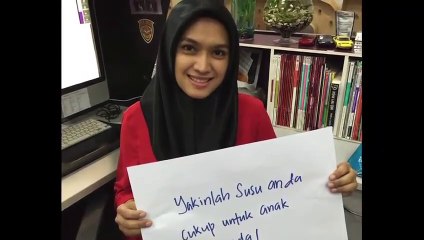 Yakinlah Susu anda
cukup untuk anak